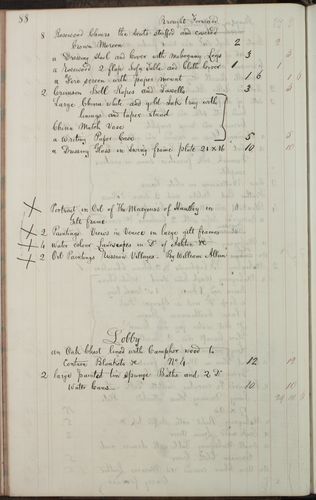 88
Brought Forward
8 Rosewood Chairs the seats stuffed and covered
Crimson Moreen 2 2
a Dressing Stool and Cover with mahogany Legs 3 3
a Rosewood 2 flap Sofa Table and Cloth Cover 1 1
a Fire screen with paper mount 1 6 1 6
2 Crimson Bell Ropes and Tassells 3 3
Large China white and gold Ink tray with
linings and taper stand
China Match Vase
a Writing Paper Case 5 5
a Dressing Glass in Swing frame plate 21 x 16 10 10
X Portrait in Oil of The Marquess of Huntley in
Gilt frame
X 2 Paintings Views in Venice in large gilt frames
X 4 Water colour Landscapes in Do of Ashton &c
X 2 Oil Paintings Russian Villages. By William Allan
Lobby
an Oak Chest lined with Camphor wood to
contain Blankets &c No 4 12 12
2 large painted tin Spunge Baths and 2 Do
Water Cans 10 10